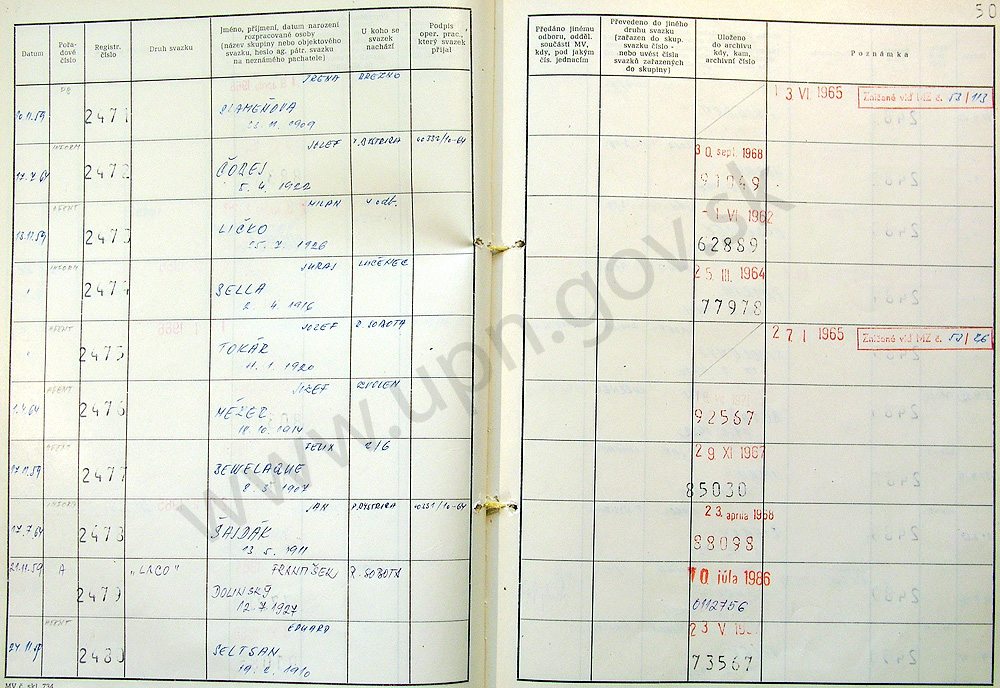 50
Datum
Pořadové číslo
Registr. číslo
Druh svazku
Jméno, příjmení, datum narození
rozpracované osoby
(název skupiny nebo objektového
svazku, heslo ag. pátr. svazku
na neznámého pachatele)
U koho se
svazek
nachází
Podpis
oper. prac.,
který svazek
přijal
Předáno jinému
odboru, odděl.
součásti MV,
kdy, pod jakým
čís. jednacím
Převedeno do jiného
druhu svazku
(zařazen do skup.
svazku číslo -
nebo uvést čísla
svazků zařazených
do skupiny)
Uloženo
do archivu
kdy, kam,
archivní číslo
Poznámka
IRENA BREZNO
2471 SLAMEŇOVA
1909
1 3 VI 1965 Znížené vid MZ č. 53/113
INFORM JOZEF B.BYSTRICA
17.7.64 2472 ČOREJ
5. 4. 1922
3 0. sept. 1968
AGENT MILAN V odb.
2473 LIČKO
25. 7. 1926
-1 VI 1962
62889
INFORM JURAJ LUČENEC
" 2474 SELLA
2. 4. 1916
25. III. 1964
77978
AGENT JOZEF R. SOBOTA
" 2475 TOKÁR
11. 1. 1920
2 7 I 1965 Znížené vid MZ č. 53/26
AGENT JOZEF ZVOLEN
2476
18. 10. 1914
92567
AGENT FELIX 2/6
17.11.59 2477 SEWELAQUE
8. 3. 1907
2 9 XI 1967
85030
INFORM JÁN B.BYSTRICA
17.7.64 2478 ŠAJDÁK
13. 5. 1911
2 3. apríla 1968
88098
21.11.59 A „LACO" FRANTIŠEK R. SOBOTA
2479 DOLINSKÝ
12.7.1927
10 júla 1986
0112756
AGENT EDUARD
2480 SELTSAN
19. 2. 1910
2 3 V
73567
MV č. skl. 734
www.upn.gov.sk